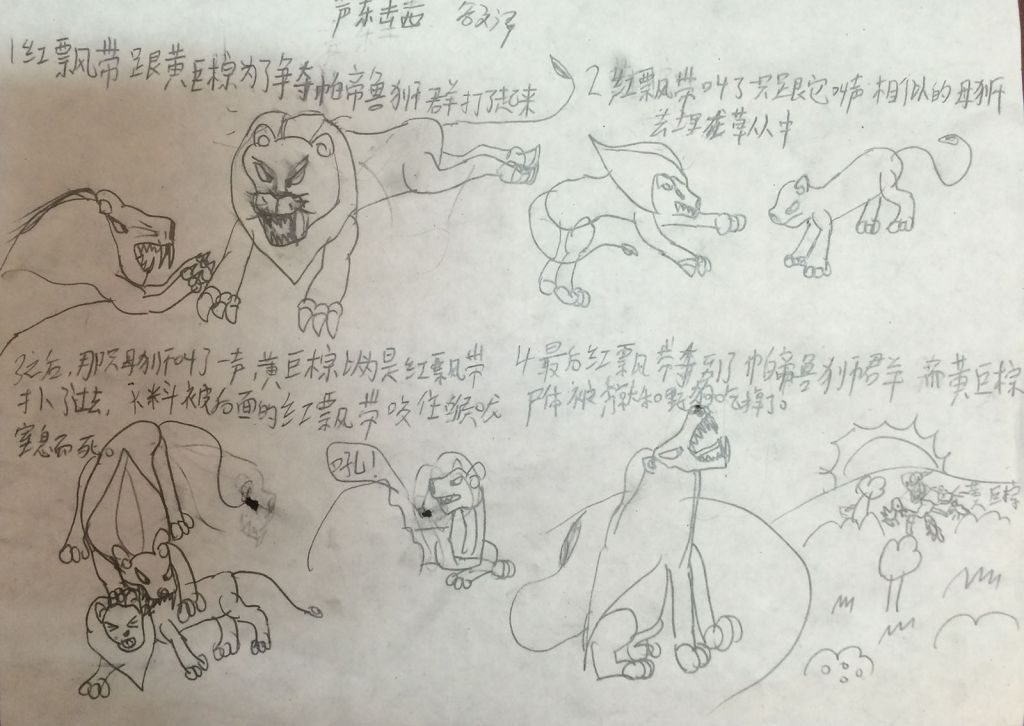 声东击西
1 红飘带跟黄巨棕为了争夺帕帝鲁狮群打了起来
2 红飘带叫了只跟它叫声相似的母狮
去埋在草从中
3 之后,那只母狮叫了一声黄巨棕以为是红飘带
扑了过去,不料被后面的红飘带咬住喉咙
窒息而死。
吼!
4 最后红飘带夺到了帕帝鲁狮群 而黄巨棕
尸体被 和野狗吃掉了。
黄巨棕